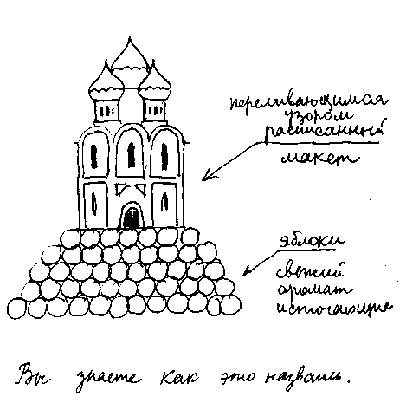 переливающимся
узором
расписанный
макет
яблоки
свежий
аромат
источающие
Вы знаете как это назвать.